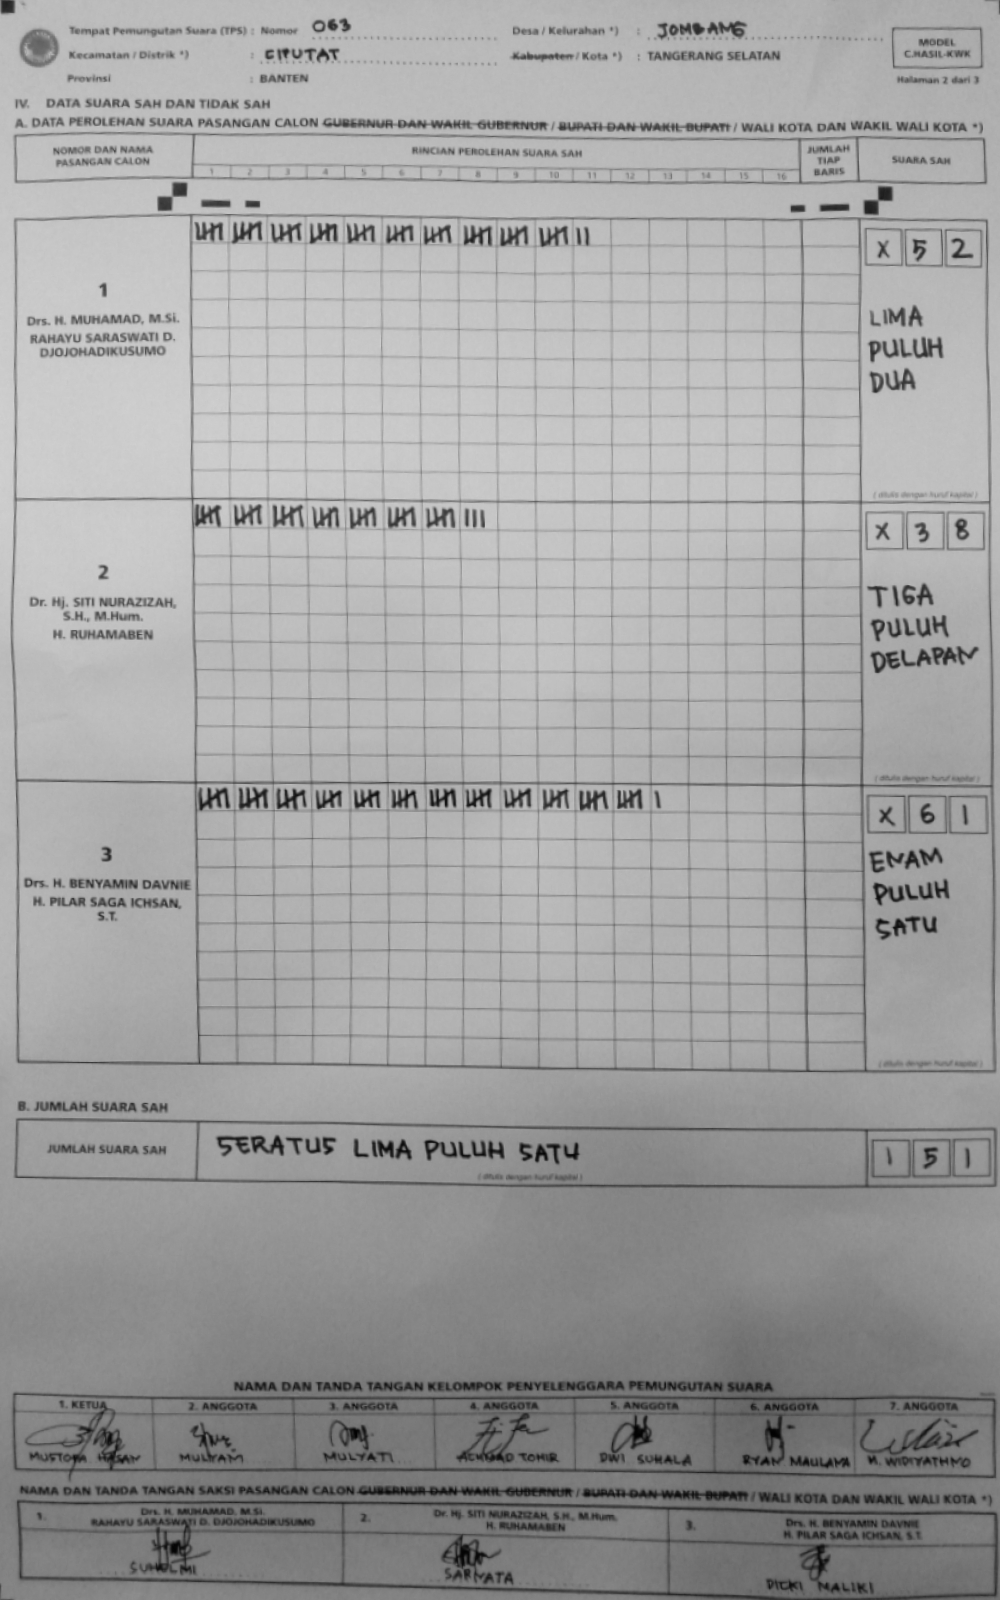 Tempat Pemungutan Suara (TPS) : Nomor 063 Desa / Kelurahan *) : JOMBANG
Kecamatan / Distrik *) : CIPUTAT Kabupaten / Kota *) : TANGERANG SELATAN
Provinsi : BANTEN
MODEL
C.HASIL-KWK
Halaman 2 dari 3
IV. DATA SUARA SAH DAN TIDAK SAH
A. DATA PEROLEHAN SUARA PASANGAN CALON GUBERNUR DAN WAKIL GUBERNUR / BUPATI DAN WAKIL BUPATI / WALI KOTA DAN WAKIL WALI KOTA *)
NOMOR DAN NAMA
PASANGAN CALON
RINCIAN PEROLEHAN SUARA SAH
1 2 3 4 5 6 7 8 9 10 11 12 13 14 15 16
JUMLAH
TIAP
BARIS
SUARA SAH
1
Drs. H. MUHAMAD, M.Si.
RAHAYU SARASWATI D.
DJOJOHADIKUSUMO
X 5 2
LIMA
PULUH
DUA
( ditulis dengan huruf kapital )
2
Dr. Hj. SITI NURAZIZAH,
S.H., M.Hum.
H. RUHAMABEN
X 3 8
TIGA
PULUH
DELAPAN
( ditulis dengan huruf kapital )
3
Drs. H. BENYAMIN DAVNIE
H. PILAR SAGA ICHSAN,
S.T.
X 6 1
ENAM
PULUH
SATU
( ditulis dengan huruf kapital )
B. JUMLAH SUARA SAH
JUMLAH SUARA SAH SERATUS LIMA PULUH SATU 1 5 1
( ditulis dengan huruf kapital )
NAMA DAN TANDA TANGAN KELOMPOK PENYELENGGARA PEMUNGUTAN SUARA
1. KETUA 2. ANGGOTA 3. ANGGOTA 4. ANGGOTA 5. ANGGOTA 6. ANGGOTA 7. ANGGOTA
MUSTOFA HASAN MULYAM MULYATI ACHMAD TOHIR DWI SUHALA RYAN MAULANA H. WIDIYATHNO
NAMA DAN TANDA TANGAN SAKSI PASANGAN CALON GUBERNUR DAN WAKIL GUBERNUR / BUPATI DAN WAKIL BUPATI / WALI KOTA DAN WAKIL WALI KOTA *)
1. Drs. H. MUHAMAD, M.Si.
RAHAYU SARASWATI D. DJOJOHADIKUSUMO
SUHELMI
2. Dr. Hj. SITI NURAZIZAH, S.H., M.Hum.
H. RUHAMABEN
SARYATA
3. Drs. H. BENYAMIN DAVNIE
H. PILAR SAGA ICHSAN, S.T.
DICKI MALIKI